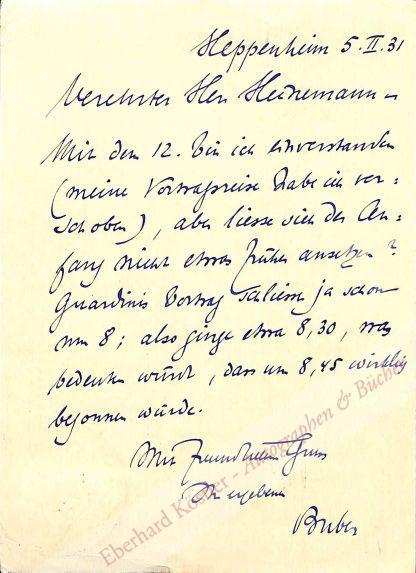 Heppenheim 5. II. 31
Verehrter Herr Heinemann –
Mit dem 12. bin ich einverstanden
(meine Vortragsreise habe ich ver-
schoben), aber liesse sich der An-
fang nicht etwas früher ansetzen?
Guardinis Vortrag schliesst ja schon
um 8; also ginge etwa 8,30, was
bedeuten würde, dass um 8,45 wirklich
begonnen würde.
Mit freundlichem Gruss
Ihr ergebener
Buber
Eberhard Köstler - Autographen & Bücher